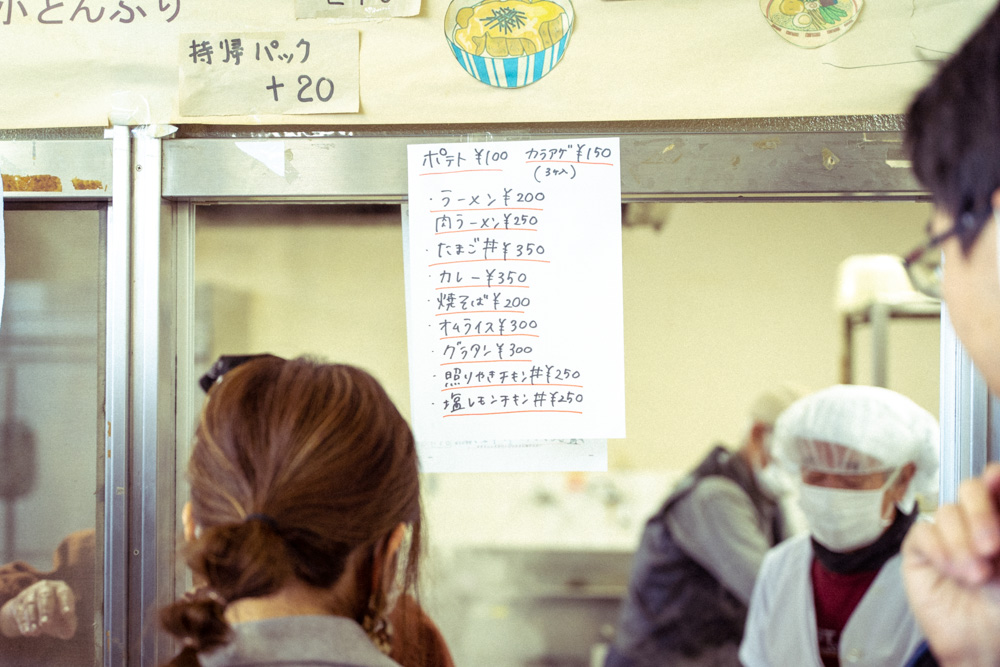 小どんぶり
持帰パック
+20
ポテト ¥100 カラアゲ¥150
(3ヶ入)
・ラーメン¥200
肉ラーメン¥250
・たまご丼¥350
・カレー¥350
・焼そば¥200
・オムライス¥300
・グラタン¥300
・照りやきチキン丼¥250
・塩レモンチキン丼¥250